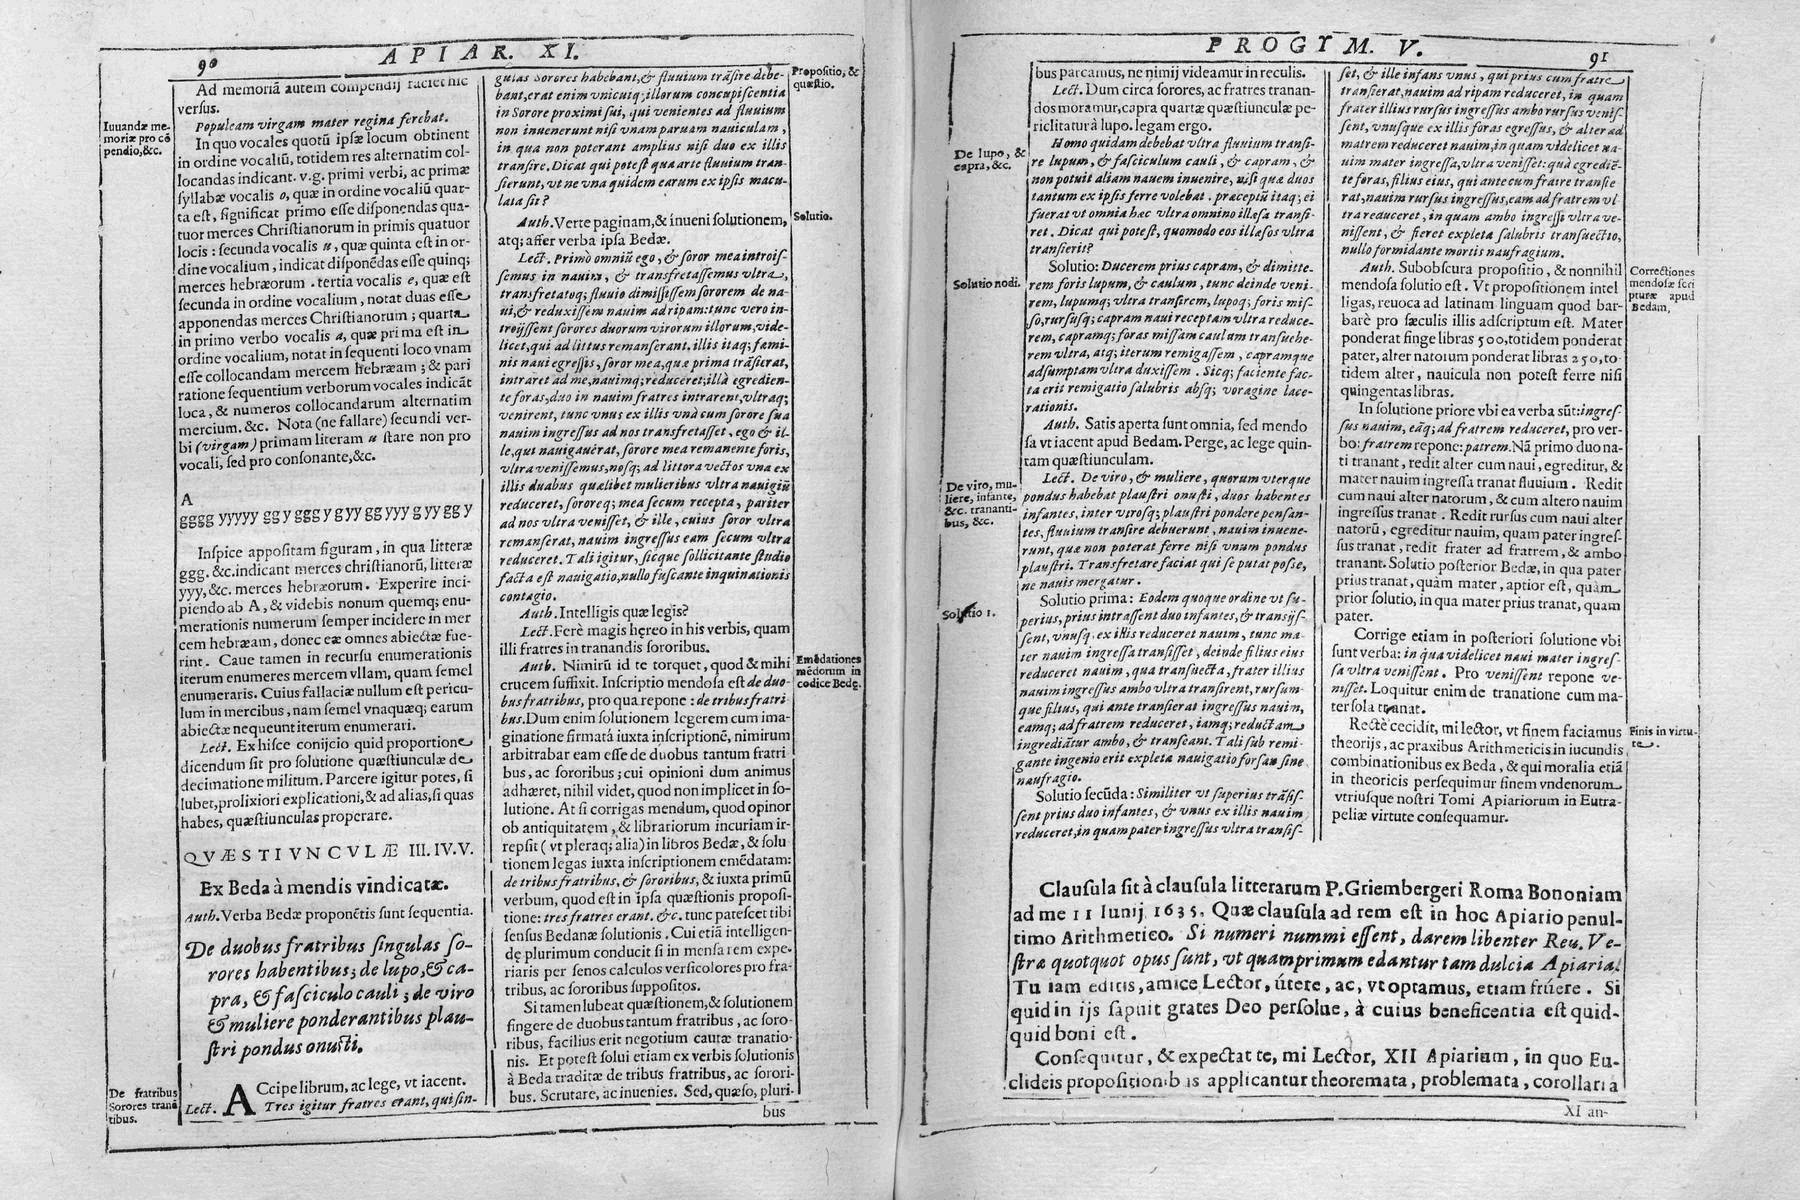 90
APIAR. XI.
Ad memoriã autem compendij faciet hic
versus.
Populeam virgam mater regina ferebat.
Iuuandæ me-
moriæ pro cõ
pendio,&c.
In quo vocales quotũ ipsæ locum obtinent
in ordine vocaliũ, totidem res alternatim col-
locandas indicant. v.g. primi verbi, ac primæ
syllabæ vocalis o, quæ in ordine vocaliũ quar-
ta est, significat primo esse disponendas qua-
tuor merces Christianorum in primis quatuor
locis: secunda vocalis u, quæ quinta est in or-
dine vocalium, indicat disponẽdas esse quinq;
merces hebræorum. tertia vocalis e, quæ est
secunda in ordine vocalium, notat duas esse
apponendas merces Christianorum; quarta
in primo verbo vocalis a, quæ prima est in
ordine vocalium, notat in sequenti loco vnam
esse collocandam mercem hebræam; & pari
ratione sequentium verborum vocales indicãt
loca, & numeros collocandarum alternatim
mercium. &c. Nota (ne fallare) secundi ver-
bi (virgam) primam literam u stare non pro
vocali, sed pro consonante,&c.
A
gggg yyyyy gg y ggg y g yy gg yyy g yy gg y
Inspice appositam figuram, in qua litteræ
ggg. &c. indicant merces christianorũ, litteræ
yyy, &c. merces hebræorum. Experire inci-
piendo ab A, & videbis nonum quemq; enu-
merationis numerum semper incidere in mer
cem hebræam, donec eæ omnes abiectæ fue-
rint. Caue tamen in recursu enumerationis
iterum enumeres mercem vllam, quam semel
enumeraris. Cuius fallaciæ nullum est pericu-
lum in mercibus, nam semel vnaquæq; earum
abiectæ nequeunt iterum enumerari.
Lect. Ex hisce conijcio quid proportione
dicendum sit pro solutione quæstiunculæ de
decimatione militum. Parcere igitur potes, si
lubet, prolixiori explicationi, & ad alias, si quas
habes, quæstiunculas properare.
QVÆSTIVNCVLÆ III. IV. V.
Ex Beda à mendis vindicatæ.
Auth. Verba Bedæ proponẽtis sunt sequentia.
De duobus fratribus singulas so-
rores habentibus; de lupo, & ca-
pra, & fasciculo cauli; de viro
& muliere ponderantibus plau-
stri pondus onusti.
De fratribus
Sorores tranã
tibus.
Lect. ACcipe librum, ac lege, vt iacent.
Tres igitur fratres erant, qui sin-
gulas Sorores habebant, & fluuium trãsire debe-
bant, erat enim vnicutq; illorum concupiscentia
in Sorore proximi sui, qui venientes ad fluuium
non inuenerunt nisi vnam paruam nauiculam,
in qua non poterant amplius nisi duo ex illis
transire. Dicat qui potest qua arte fluuium tran-
sierunt, vt ne vna quidem earum ex ipsis macu-
lata sit?
Propositio, &
quæstio.
Auth. Verte paginam, & inueni solutionem,
atq; affer verba ipsa Bedæ.
Solutio.
Lect. Primò omniũ ego, & soror mea introis-
semus in nauim, & transfretassemus vltra,
transfretatoq; fluuio dimisissem sororem de na-
ui, & reduxissem nauim ad ripam: tunc vero in-
troijssent sorores duorum virorum illorum, vide-
licet, qui ad littus remanserant, illis itaq; fæmi-
nis naui egressis, soror mea, quæ prima trãsierat,
intraret ad me, nauimq; reduceret; illà egredien-
te foras, duo in nauim fratres intrarent, vltraq;
venirent, tunc vnus ex illis vnà cum sorore sua
nauim ingressus ad nos transfretasset, ego & il-
le, qui nauigauérat, sorore mea remanente foris,
vltra venissemus, nosq; ad littora vectos vna ex
illis duabus quælibet mulieribus vltra nauigiũ
reduceret, sororeq; mea secum recepta, pariter
ad nos vltra venisset, & ille, cuius soror vltra
remanserat, nauim ingressus eam secum vltra
reduceret. Tali igitur, sicque sollicitante studio
facta est nauigatio, nullo fuscante inquinationis
contagio.
Auth. Intelligis quæ legis?
Lect. Ferè magis hęreo in his verbis, quam
illi fratres in tranandis sororibus.
Auth. Nimirũ id te torquet, quod & mihi
crucem suffixit. Inscriptio mendosa est de duo-
bus fratribus, pro qua repone: de tribus fratri
bus. Dum enim solutionem legerem cum ima-
ginatione firmatá iuxta inscriptionẽ, nimirum
arbitrabar eam esse de duobus tantum fratri-
bus, ac sororibus; cui opinioni dum animus
adhæret, nihil videt, quod non implicet in so-
lutione. At si corrigas mendum, quod opinor
ob antiquitatem, & librariorum incuriam ir-
repsit (vt pleraq; alia) in libros Bedæ, & solu
tionem legas iuxta inscriptionem emẽdatam:
de tribus fratribus, & sororibus, & iuxta primũ
verbum, quod est in ipsa quæstionis proposi-
tione: tres fratres erant. &c. tunc patescet tibi
sensus Bedanæ solutionis. Cui etiã intelligen-
dę plurimum conducit si in mensa rem expe-
riaris per senos calculos versicolores pro fra-
tribus, ac sororibus suppositos.
Emẽdationes
mẽdorum in
codice Bedę.
Si tamen lubeat quæstionem, & solutionem
fingere de duobus tantum fratribus, ac soro-
ribus, facilius erit negotium cautæ tranatio-
nis. Et potest solui etiam ex verbis solutionis
à Beda traditæ de tribus fratribus, ac sorori-
bus. Scrutare, ac inuenies. Sed, quæso, pluri-
bus
PROGYM. V.
91
bus parcamus, ne nimij videamur in reculis.
Lect. Dum circa sorores, ac fratres tranan-
dos moramur, capra quartæ quæstiunculæ pe-
riclitatur à lupo. legam ergo.
De lupo, &
capra, &c.
Homo quidam debebat vltra fluuium transi-
re lupum, & fasciculum cauli, & capram, &
non potuit aliam nauem inuenire, nisi quæ duos
tantum ex ipsis ferre volebat. præceptũ itaq; ei
fuerat vt omnia hæc vltra omnino illæsa transi-
ret. Dicat qui potest, quomodo eos illæsos vltra
transierit?
Solutio nodi.
Solutio: Ducerem prius capram, & dimitte-
rem foris lupum, & caulum, tunc deinde veni-
rem, lupumq; vltra transirem, lupoq; foris mis-
so, rursusq; capram naui receptam vltra reduce-
rem, capramq; foras missam caulum transuehe-
rem vltra, atq; iterum remigassem, capramque
adsumptam vltra duxissem. Sicq; faciente fac-
ta erit remigatio salubris absq; voragine lace-
rationis.
Auth. Satis aperta sunt omnia, sed mendo
sa vt iacent apud Bedam. Perge, ac lege quin-
tam quæstiunculam.
De viro, mu-
liere, infante,
&c. trananti-
bus, &c.
Lect. De viro, & muliere, quorum vterque
pondus habebat plaustri onusti, duos habentes
infantes, inter vtrosq; plaustri pondere pensan-
tes, fluuium transire debuerunt, nauim inuene-
runt, quæ non poterat ferre nisi vnum pondus
plaustri. Transfretare faciat qui se putat posse,
ne nauis mergatur.
Solutio 1.
Solutio prima: Eodem quoque ordine vt su-
perius, prius intrassent duo infantes, & transijs-
sent, vnusq. ex illis reduceret nauim, tunc ma-
ter nauim ingressa transisset, deinde filius eius
reduceret nauim, qua transuecta, frater illius
nauim ingressus ambo vltra transirent, rursum-
que filius, qui ante transierat ingressus nauim,
eamq; ad fratrem reduceret, iamq; reductam
ingrediãtur ambo, & transeant. Tali sub remi-
gante ingenio erit expleta nauigatio forsan sine
naufragio.
Solutio secũda: Similiter vt superius trãsis-
sent prius duo infantes, & vnus ex illis nauim
reduceret, in quam pater ingressus vltra transis-
set, & ille infans vnus, qui prius cum fratre
transierat, nauim ad ripam reduceret, in quam
frater illius rursus ingressus ambo rursus venis-
sent, vnusque ex illis foras egressus, & alter ad
matrem reduceret nauim, in quam videlicet na-
uim mater ingressa, vltra venisset: quà egrediẽ-
te foras, filius eius, qui ante cum fratre transie
rat, nauim rursus ingressus, eam ad fratrem vl
tra reduceret, in quam ambo ingressi vltra ve-
nissent, & fieret expleta salubris transuectio,
nullo formidante mortis naufragium.
Auth. Subobscura propositio, & nonnihil
mendosa solutio est. Vt propositionem intel
ligas, reuoca ad latinam linguam quod bar-
barè pro sæculis illis adscriptum est. Mater
ponderat finge libras 500, totidem ponderat
pater, alter natorum ponderat libras 250, to-
tidem alter, nauicula non potest ferre nisi
quingentas libras.
Correctiones
mendosæ scri
pturæ apud
Bedam,
In solutione priore vbi ea verba sũt: ingres-
sus nauim, eãq; ad fratrem reduceret, pro ver-
bo: fratrem repone: patrem. Nã primo duo na-
ti tranant, redit alter cum naui, egreditur, &
mater nauim ingressa tranat fluuium. Redit
cum naui alter natorum, & cum altero nauim
ingressus tranat. Redit rursus cum naui alter
natorũ, egreditur nauim, quam pater ingres-
sus tranat, redit frater ad fratrem, & ambo
tranant. Solutio posterior Bedæ, in qua pater
prius tranat, quàm mater, aptior est, quàm
prior solutio, in qua mater prius tranat, quam
pater.
Corrige etiam in posteriori solutione vbi
sunt verba: in quã videlicet naui mater ingres-
sa vltra venissent. Pro venissent repone ve-
nisset. Loquitur enim de tranatione cum ma-
ter sola tranat.
Rectè cecidit, mi lector, vt finem faciamus
theorijs, ac praxibus Arithmeticis in iucundis
combinationibus ex Beda, & qui moralia etiã
in theoricis persequimur finem vndenorum
vtriusque nostri Tomi Apiariorum in Eutra-
peliæ virtute consequamur.
Finis in virtu-
te.
Clausula sit à clausula litterarum P. Griembergeri Roma Bononiam
ad me 11 Iunij 1635. Quæ clausula ad rem est in hoc Apiario penul-
timo Arithmetico. Si numeri nummi essent, darem libenter Reu. Ve-
stræ quotquot opus sunt, vt quamprimum edantur tam dulcia Apiaria.
Tu iam editis, amice Lector, útere, ac, vt optamus, etiam frúere. Si
quid in ijs sapuit grates Deo persolue, à cuius beneficentia est quid-
quid boni est.
Consequitur, & expectat te, mi Lector, XII Apiarium, in quo Eu-
clideis propositionibus applicantur theoremata, problemata, corollaria
XI an-